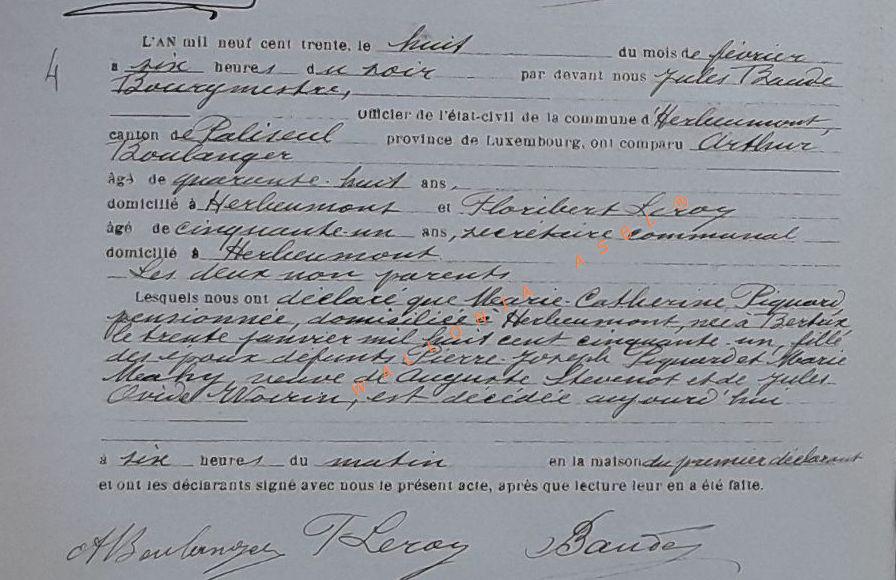 L'AN mil neuf cent trente, le huit du mois de février
4
à six heures du soir par devant nous Jules Baude
Bourgmestre,
Officier de l'état-civil de la commune d'Herbeumont,
canton de Paliseul province de Luxembourg, ont comparu Arthur
Boulanger
âgé de quarante-huit ans,
domicilié à Herbeumont et Floribert Leroy
âgé de cinquante-un ans, secrétaire communal
domicilié à Herbeumont
Les deux non parents
Lesquels nous ont déclaré que Marie-Catherine Piquard
pensionnée, domiciliée à Herbeumont, née à Bertrix
le trente janvier mil huit cent cinquante-un, fille
des époux défunts Pierre-Joseph Piquard et Marie
Mahy veuve de Auguste Stevenot et de Jules
Ovide Woirin, est décédée aujourd'hui
à six heures du matin en la maison du premier déclarant
et ont les déclarants signé avec nous le présent acte, après que lecture leur en a été faite.
ABoulanger F Leroy JBaude
WALLONIA ASBL